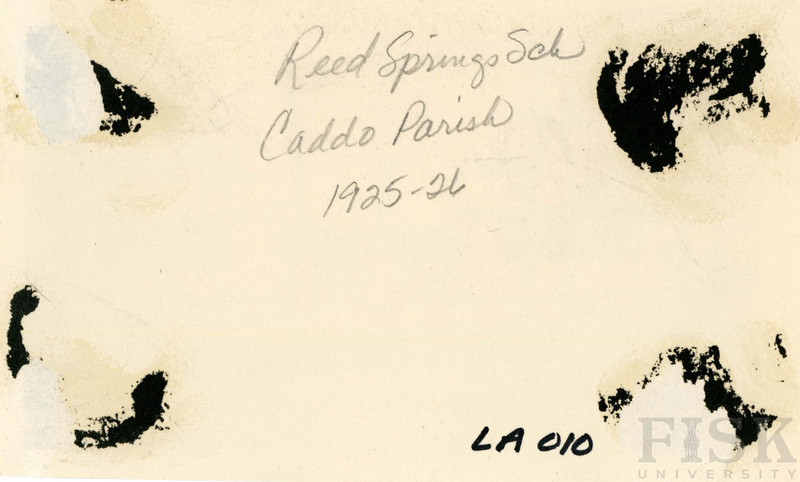 Reed Springs Sch
Caddo Parish
1925-26
LA 010
FISK
UNIVERSITY